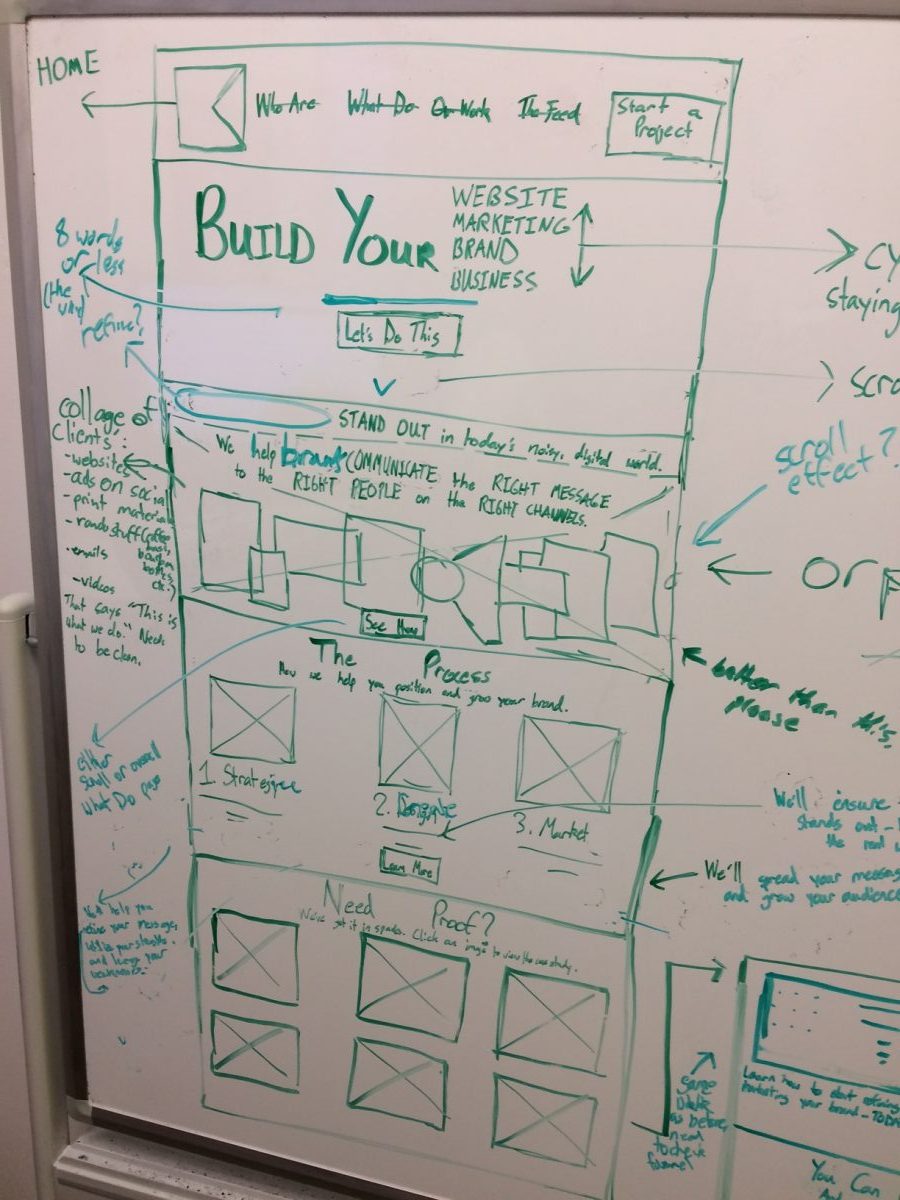 HOME
Who Are What Do Our Work The Feed
Start a
Project
BUILD YOUR
WEBSITE
MARKETING
BRAND
BUSINESS
Let's Do This
8 words
or less
(the
refine?
STAND OUT in today's noisy, digital world.
We help brands COMMUNICATE the RIGHT MESSAGE
to the RIGHT PEOPLE on the RIGHT CHANNELS.
See More
collage of
clients':
- websites
- ads on social
- print material
- rando stuff (coffee
etc.)
- emails
- videos
That says "This is
what we do." Needs
to be clean.
The Process
How we help you position and grow your brand.
1. Strategize
2.
3. Market
Learn More
either
scroll or overall
What Do page
help you
your message,
your
and
Need Proof?
We've got it in spades. Click an image to view the case study.
staying
scroll
effect?
or
better than this,
please
We'll ensure
stands out -
the
We'll spread your message
and grow your audience
same
as before,
need
funnel
Learn how to start refining
marketing your brand - TODAY
You Can